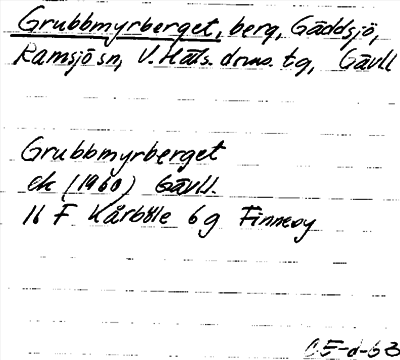 Grubbmyrberget, berg, Gäddsjö,
Ramsjö sn, V. Häls. doms. tg, Gävll
Grubbmyrberget
ek (1960) Gävll.
16 F Kårböle 6g Finneby
5-d-63